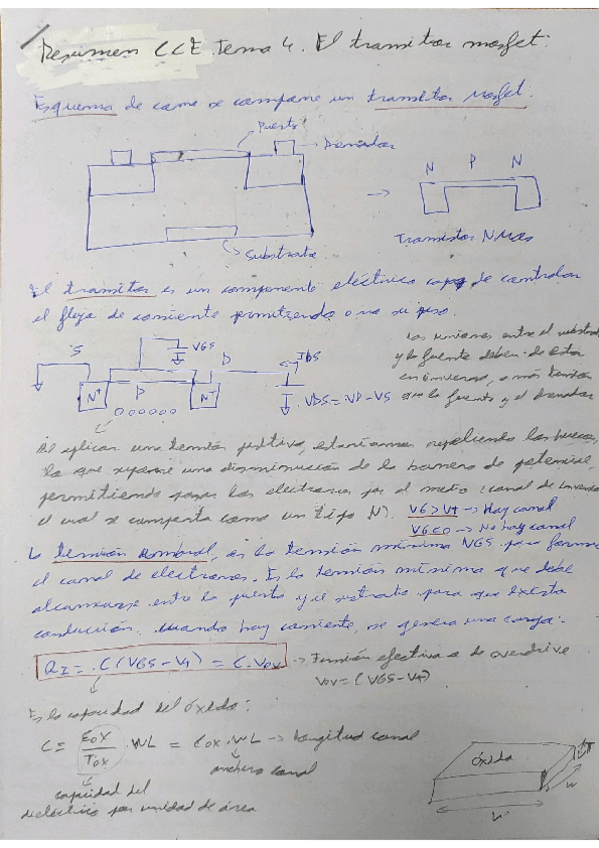 Resumen CCE Tema 4. El transistor mosfet.
Esquema de como se compone un transistor Mosfet.
Puerta
Drenador
Substrato
N P N
Transistor NMos
El transistor es un componente eléctrico capaz de controlar
el flujo de corriente permitiendo o no su paso.
S
VGS
D
IDS
N+
P
N+
VDS = VD - VS
Las uniones entre el substrato
y la fuente deben de estar
en inversa, a más tensión
que la fuente y el drenador
Al aplicar una tensión positiva, estaríamos repeliendo los huecos,
lo que supone una disminución de la barrera de potencial,
permitiendo pasar los electrones por el medio (canal de inversión
el cual se comporta como un tipo N)
VG>Vt → Hay canal
VG<0 → No hay canal
La tensión umbral, es la tensión mínima VGS para formar
el canal de electrones. Es la tensión mínima que debe
alcanzarse entre la puerta y el sustrato para que exista
conducción. Cuando hay corriente, se genera una carga:
QI = C(VGS - Vt) = C.Vov → Tensión efectiva o de overdrive
Vov = (VGS - Vt)
Es la capacidad del óxido:
C = Eox/Tox . WL = Cox . WL → Longitud canal
anchura canal
capacidad del
dieléctrico por unidad de área
óxido
W
L